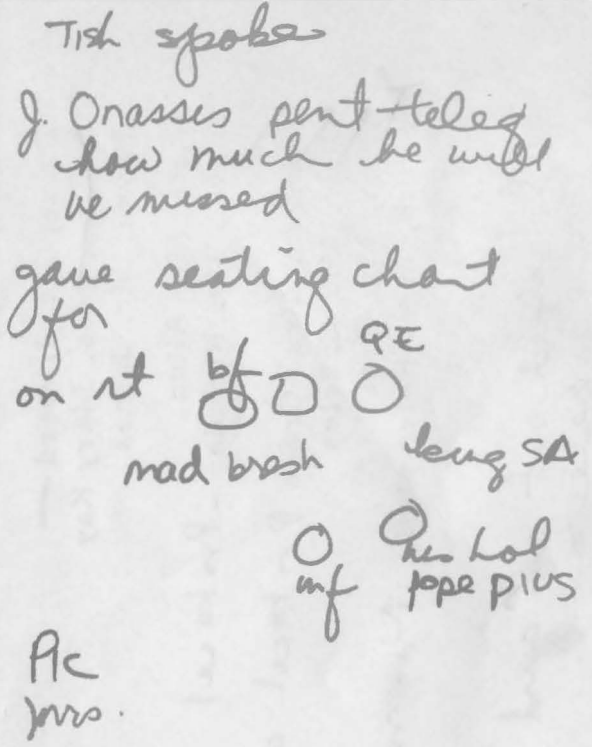 Tish spoke
J. Onasses sent teleg
how much he will
be missed
gave seating chart
for
QE
on rt bf
mad bresh king SA
his hol
mf pope pius
Pic